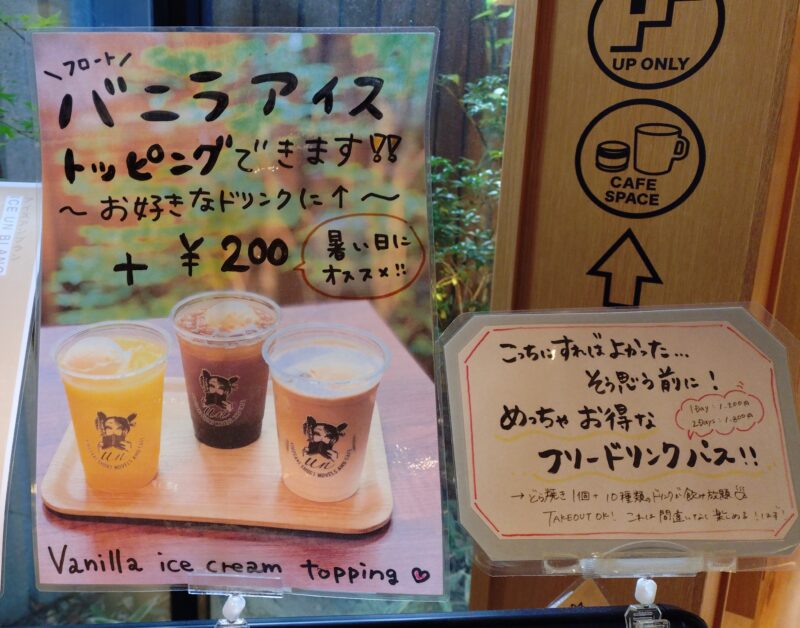 \フロート/
バニラアイス
トッピングできます!!
～お好きなドリンクに↑～
+ ¥200
暑い日に
オススメ!!
un
Vanilla ice cream topping ♡
UP ONLY
CAFE
SPACE
こっちにすればよかった...
そう思う前に!
めっちゃお得な
フリードリンクパス!!
1Day:1.200円
2Days:1.800円
→どら焼き1個+10種類のドリンクが飲み放題
TAKEOUT OK! これは間違いなく楽しめる!はず!